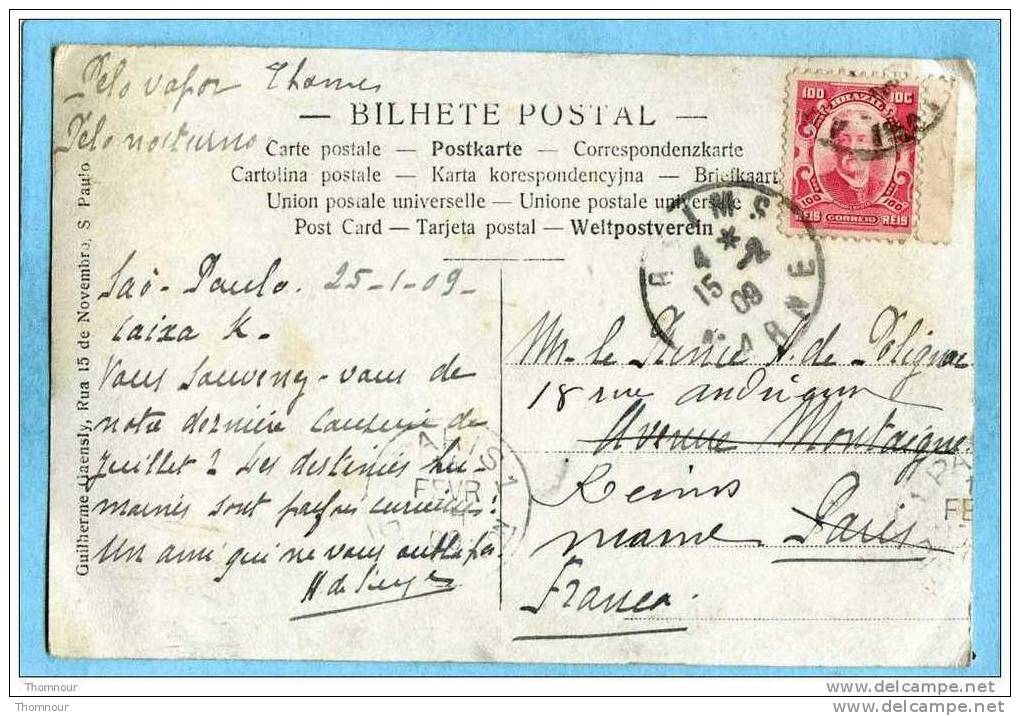 Pelo vapor Thames
Pelo nocturno
— BILHETE POSTAL —
Carte postale — Postkarte — Correspondenzkarte
Cartolina postale — Karta korespondencyjna — Briefkaart
Union postale universelle — Unione postale universelle
Post Card — Tarjeta postal — Weltpostverein
Guilherme Gaensly, Rua 15 de Novembro, S Paulo
100 100
BRAZIL
100 100
REIS CORREIO REIS
REIMS
4 * 2
15 09
MARNE
São-Paulo. 25-1-09-
Caixa K-
Vous souvenez-vous de
notre dernière causerie de
juillet? Les destinées hu-
maines sont parfois curieuses!
Un ami qui ne vous oublie pas
H de
PARIS
FEVR
Mr le Prince A. de Polignac
18 rue
Avenue Montaigne
Reims
Marne Paris
Franca.
PA
FE
Thomnour
Thomnour
www.delcampe.net
www.delcampe.net